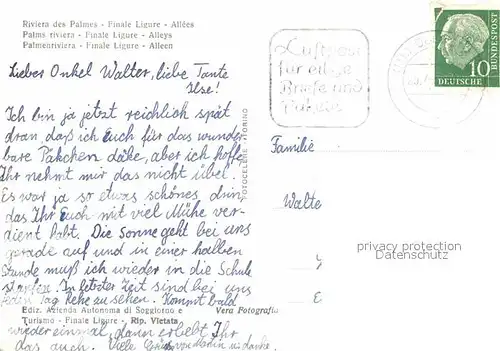 Riviera des Palmes - Finale Ligure - Allées
Palms riviera - Finale Ligure - Alleys
Palmenriviera - Finale Ligure - Alleen
Luftpost
für eilige
Briefe und
Pakete
10
DEUTSCHE
BUNDESPOST
Lieber Onkel Walter, liebe Tante
Ilse!
Ich bin ja jetzt reichlich spät
dran daß ich Euch für das wunder
bare Päkchen dake, aber ich hoffe
Ihr nehmt mir das nicht übel.
Es war ja so etwas schönes drin,
das Ihr Euch mit viel Mühe ver-
dient habt. Die Sonne geht bei uns
gerade auf und in einer halben
Stunde muß ich wieder in die Schule
In letzter Zeit sind bei uns
jeden Tag Rehe zu sehen. Kommt bald
wieder einmal, dann erlebt Ihr
das auch. Viele
FOTOCELERE TORINO
Familie
Walte
privacy protection
Datenschutz
Ediz. Azienda Autonoma di Soggiorno e
Vera Fotografia
Turismo - Finale Ligure - Rip. Vietata